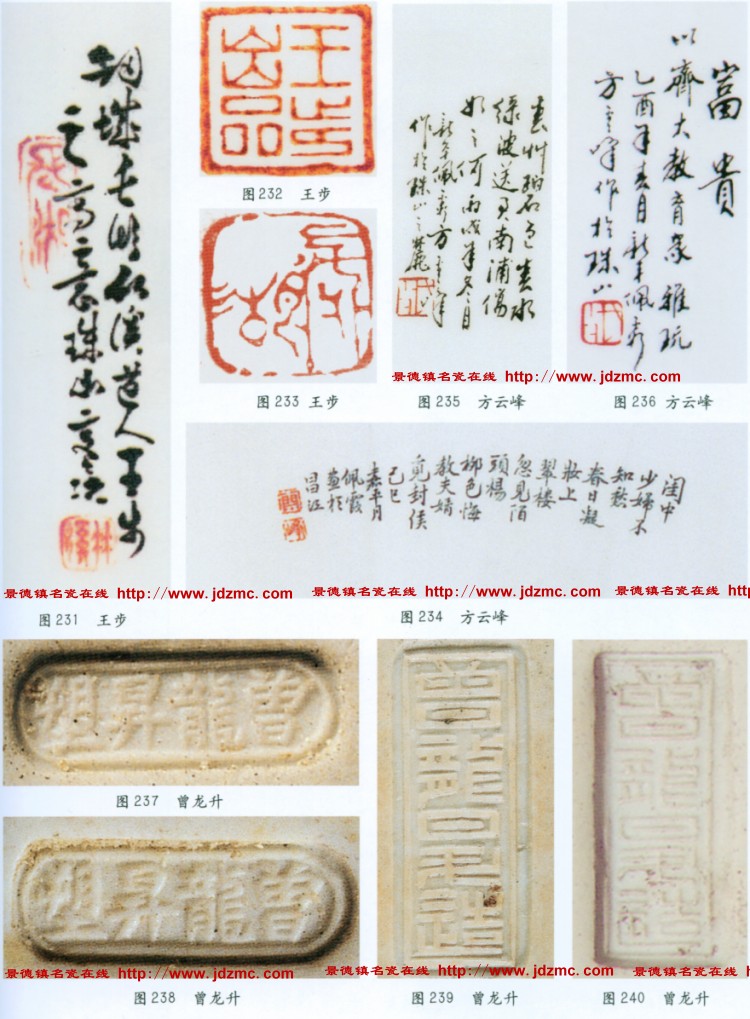 道人王步
珠山
王步
图232 王步
图233 王步
春草碧色春水
绿波送君南浦傷
如之何丙戌年冬月
新平佩霞方雲峰
作於珠山之麓
富貴
以齋大教育家雅玩
乙酉年春月新平佩霞
方雲峰作於珠山
景德镇名瓷在线 http://www.jdzmc.com
图235 方云峰
图236 方云峰
闺中
少婦不
知愁
春日凝
妝上
翠樓
忽見陌
頭楊
柳色悔
教夫婿
覓封侯
己巳
嘉平月
佩霞
畫於
昌江
景德镇名瓷在线 http://www.jdzmc.com
景德镇名瓷在线 http://www.jdzmc.com
景德镇名瓷在线 htt
图231 王步
图234 方云峰
曾龍昇塑
图237 曾龙升
曾龍昇塑
曾龍昇造
曾龍昇造
景德镇名瓷在线 http://www.jdzmc.com
景德镇名瓷在线 http://www.jdzmc.com
景德镇名瓷在线
图238 曾龙升
图239 曾龙升
图240 曾龙升